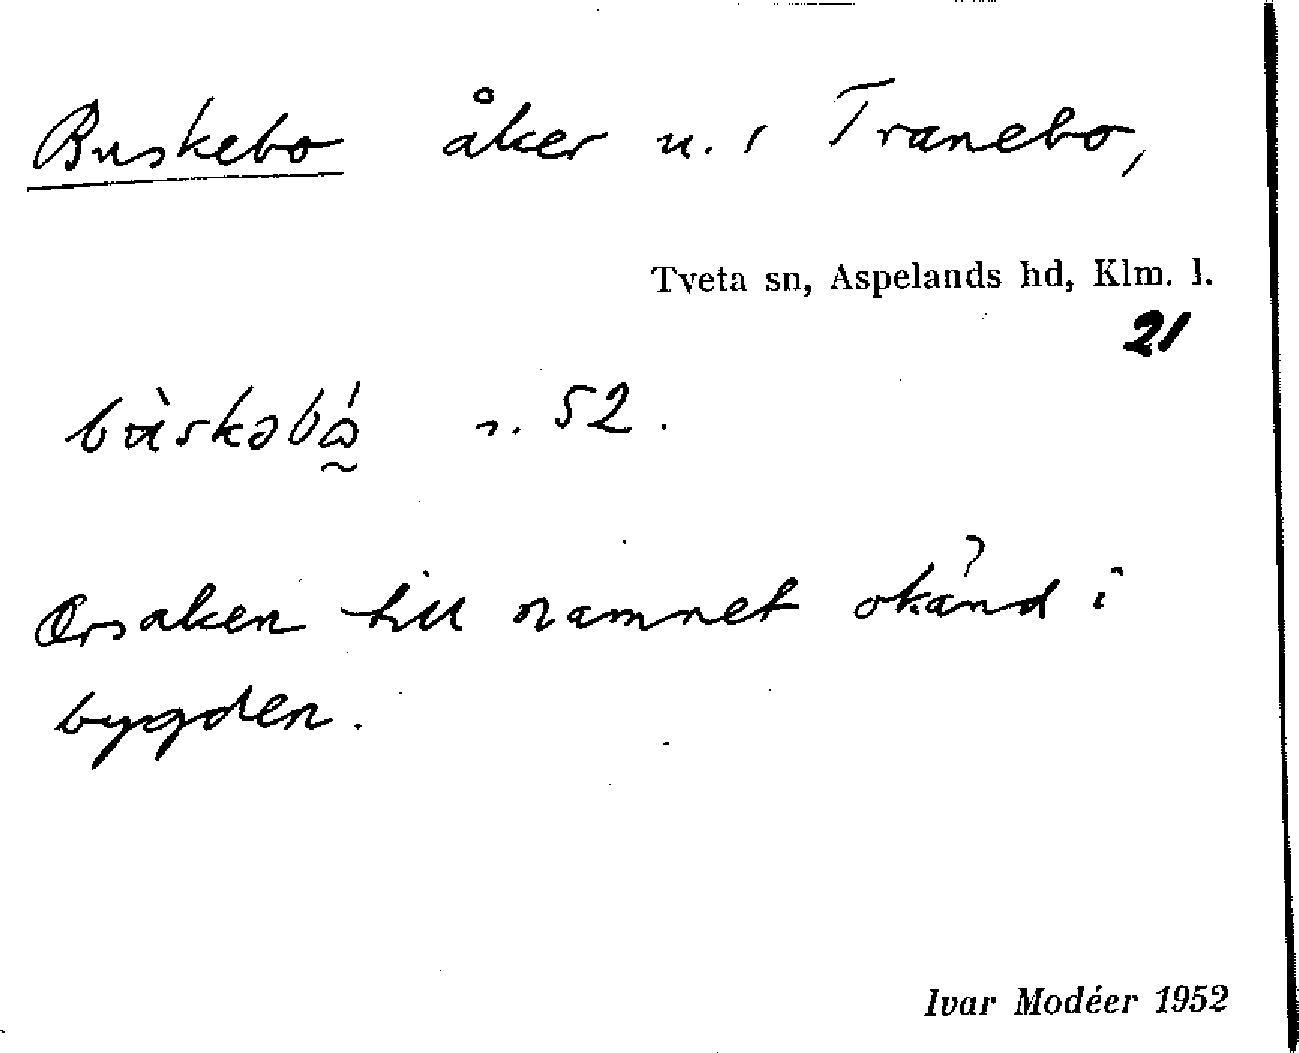 Buskebo åker u. 1 Tranebo,
Tveta sn, Aspelands hd, Klm. l.
21
s. 52.
Orsaken till namnet okänd i
bygden.
Ivar Modéer 1952